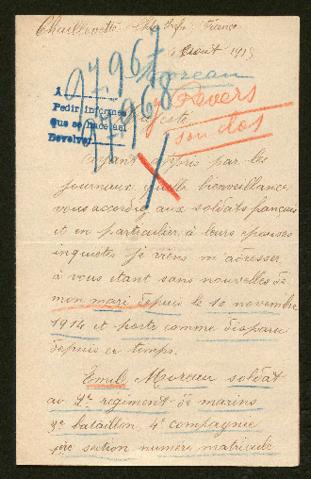 Chaillevette Chte Infre France
Août 1915
97967
97968
Moreau
Devers
son dos
1
Pedir informes
que se hace así
Devolver
Majesté
Ayant appris par les
journaux quelle bienveillance
vous accordez aux soldats français
et en particulier, à leurs epouses
inquiètes je viens m'adresser
à vous étant sans nouvelles de
mon mari depuis le 10 novembre
1914 et porté comme disparu
depuis ce temps.
Emile Moreau soldat
au 2e regiment de marins
2e bataillon 4e compagnie
1ère section numéro matricule